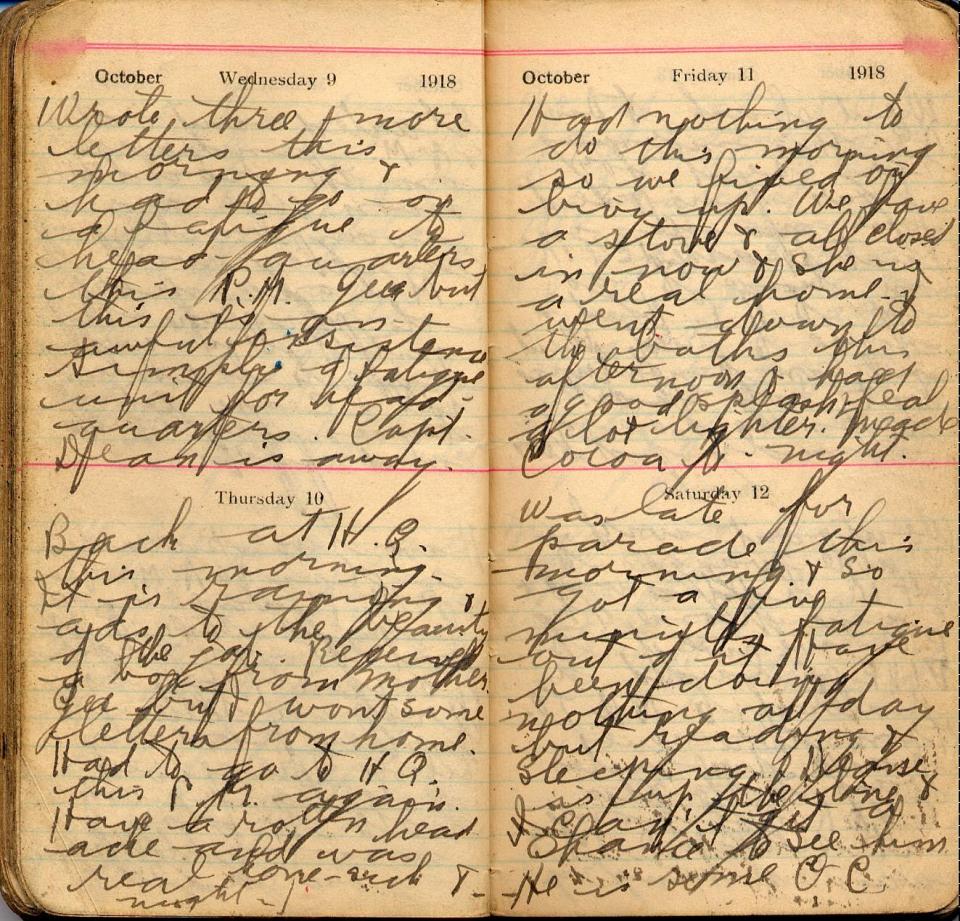 October Wednesday 9 1918
Wrote three & more
letters this
morning &
had to go on
a fatigue to
head-quarters
this P.M. Gee but
this is an
awful existence
simply a fatigue
unit for head-
quarters. Capt.
Dean is away.
Thursday 10
Back at H.Q.
this morning.
It is raining &
adds to the beauty
of the job. Received
a box from mother.
Gee but I want some
letters from home.
Had to go to H.Q.
this P.M. again.
Have a rotten head
ache and was
real sick
night-
October Friday 11 1918
Had nothing to
do this morning
so we fixed our
bivy up. We have
a stove & all closed
in now & she is
a real home. I
went down to
the baths this
afternoon & had
a good splash, feel
a lot lighter. Made
Cocoa to-night.
Saturday 12
Was late for
parade this
morning & so
got a five
minute fatigue
out of it. Have
been doing
nothing all day
but reading &
sleeping.
is up the line &
I can't get a
chance to see him
He is some O.C.